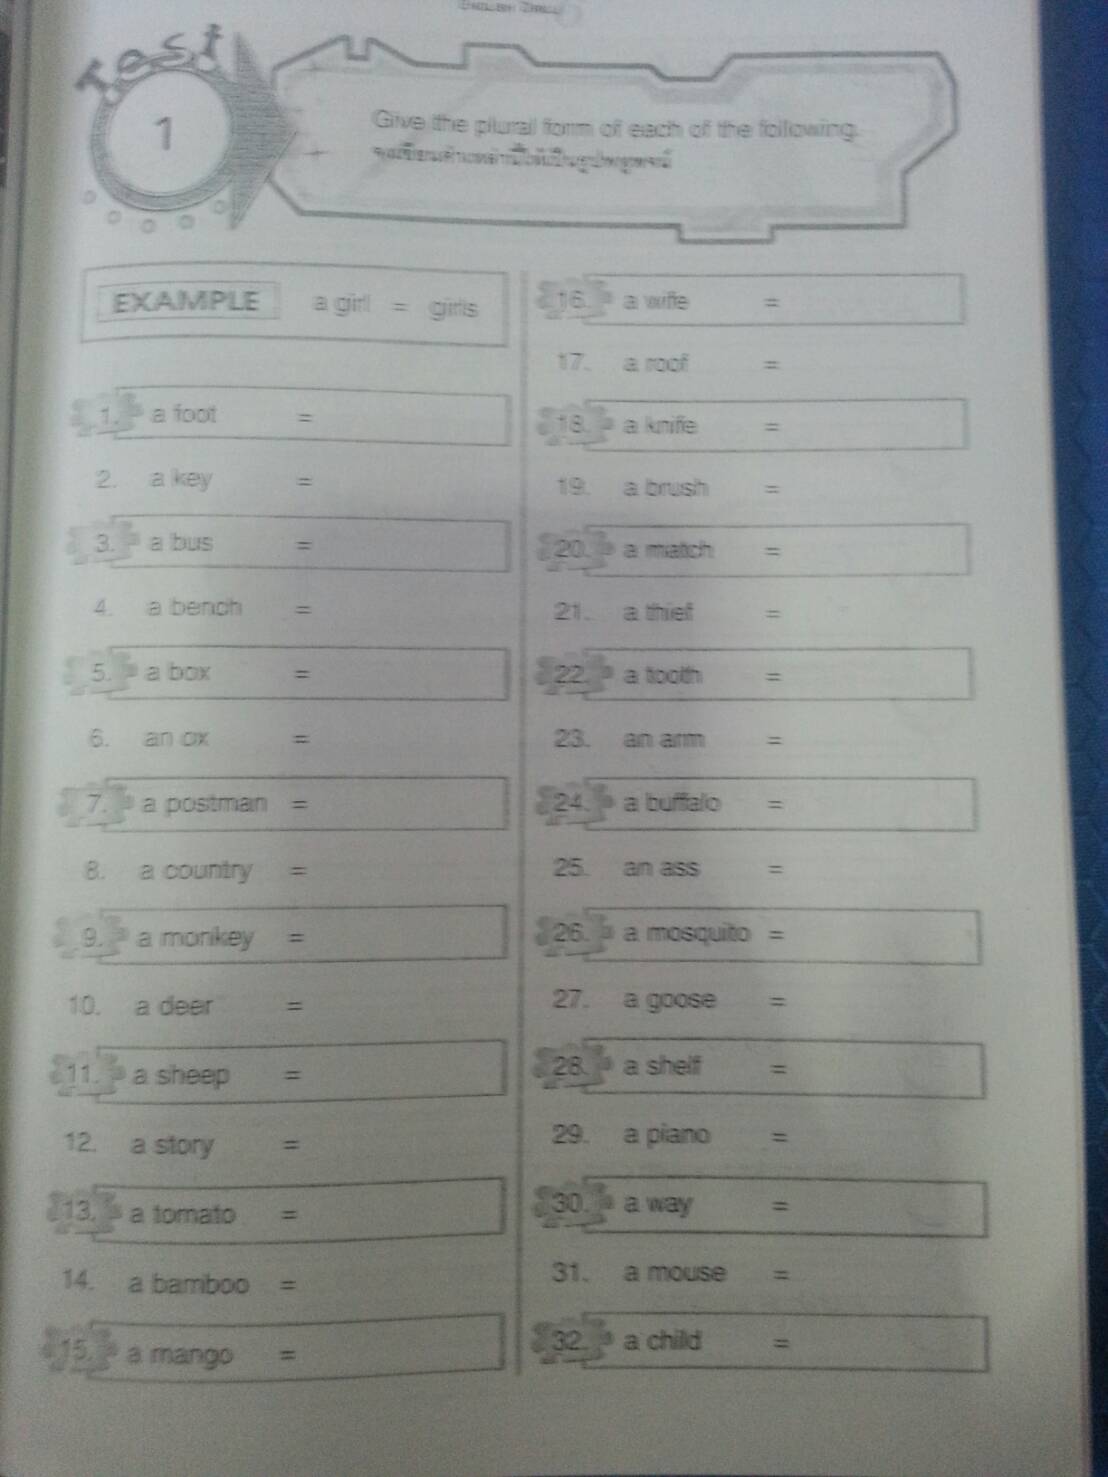 ENGLISH DRILL
Test
1
Give the plural form of each of the following.
จงเขียนคำเหล่านี้ให้เป็นรูปพหูพจน์
EXAMPLE a girl = girls
1. a foot =
2. a key =
3. a bus =
4. a bench =
5. a box =
6. an ox =
7. a postman =
8. a country =
9. a monkey =
10. a deer =
11. a sheep =
12. a story =
13. a tomato =
14. a bamboo =
15. a mango =
16. a wife =
17. a roof =
18. a knife =
19. a brush =
20. a match =
21. a thief =
22. a tooth =
23. an arm =
24. a buffalo =
25. an ass =
26. a mosquito =
27. a goose =
28. a shelf =
29. a piano =
30. a way =
31. a mouse =
32. a child =